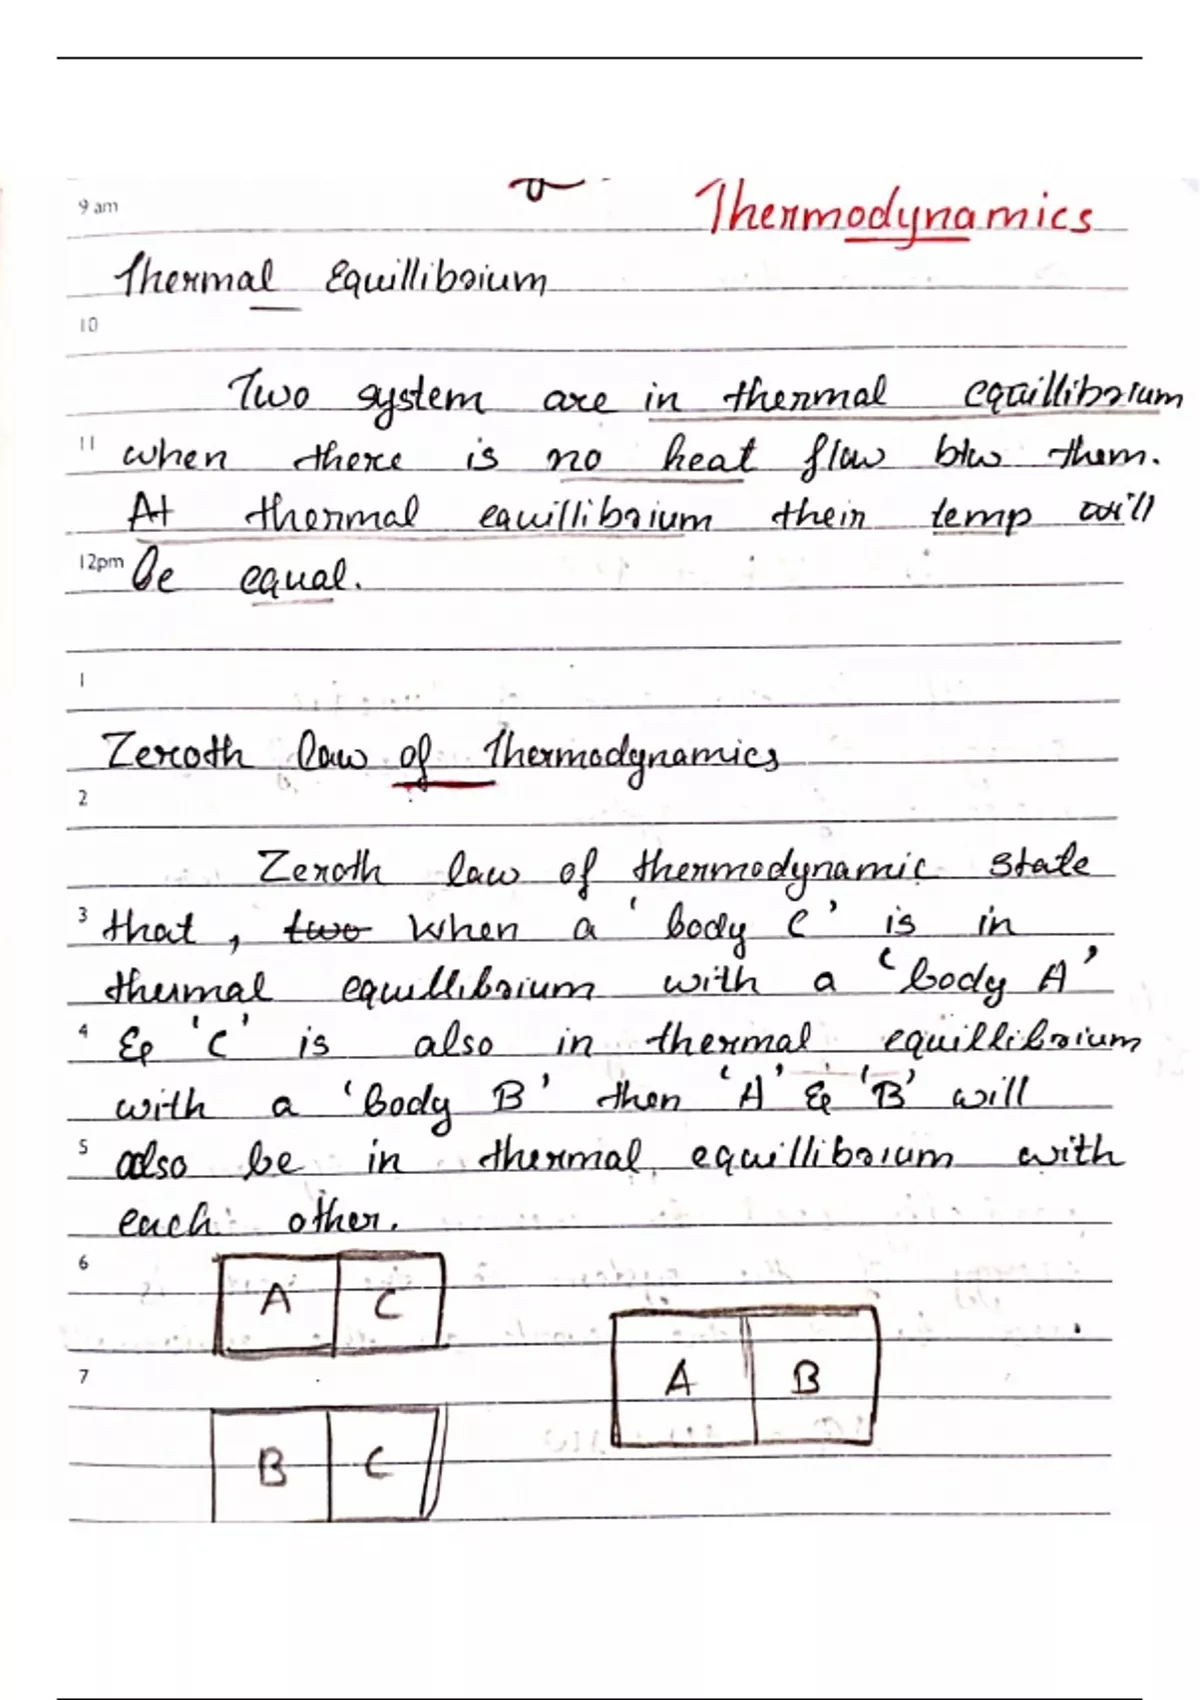 9 am
Thermodynamics
Thermal Equillibrium
10
Two system are in thermal equillibrium
11 when there is no heat flow btw them.
At thermal equillibrium their temp will
12pm be equal.
1
Zeroth law of Thermodynamics
2
Zeroth law of thermodynamic state
3 that, two when a 'body C' is in
thermal equillibrium with a 'body A'
4 & 'C' is also in thermal equillibrium
with a 'body B' then 'A' & 'B' will
5 also be in thermal equillibrium with
each other.
6
A C
A B
7
B C